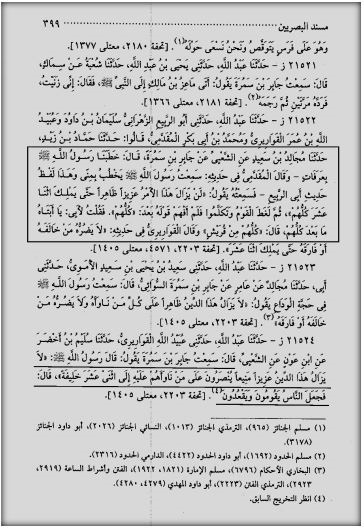 مسند البصريين ٣٩٩
وَهُوَ عَلَى فَرَسٍ يَتَوَقَّصُ وَنَحْنُ نَسْعَى حَوْلَهُ(١). [تحفة ٢١٨٠، معتلى ١٣٧٧].
٢١٥٢١ ز - حَدَّثَنَا عَبْدُ اللَّهِ، حَدَّثَنِى يَحْيَى بْنُ عَبْدِ اللَّهِ، حَدَّثَنَا شُعْبَةُ عَنْ سِمَاكٍ،
قَالَ: سَمِعْتُ جَابِرَ بْنَ سَمُرَةَ يَقُولُ: أَتَى مَاعِزُ بْنُ مَالِكٍ إِلَى النَّبِىِّ ﷺ، فَقَالَ: إِنِّى زَنَيْتُ،
فَرَدَّهُ مَرَّتَيْنِ ثُمَّ رَجَمَهُ(٢). [تحفة ٢١٨١، معتلى ١٣٦٦].
٢١٥٢٢ ز - حَدَّثَنَا عَبْدُ اللَّهِ، حَدَّثَنِى أَبُو الرَّبِيعِ الزَّهْرَانِىُّ سُلَيْمَانُ بْنُ دَاوُدَ وَعُبَيْدُ
اللَّهِ بْنُ عُمَرَ الْقَوَارِيرِىُّ وَمُحَمَّدُ بْنُ أَبِى بَكْرٍ الْمُقَدَّمِىُّ قَالُوا: حَدَّثَنَا حَمَّادُ بْنُ زَيْدٍ،
حَدَّثَنَا مُجَالِدُ بْنُ سَعِيدٍ عَنِ الشَّعْبِىِّ عَنْ جَابِرِ بْنِ سَمُرَةَ، قَالَ: خَطَبَنَا رَسُولُ اللَّهِ ﷺ
بِعَرَفَاتٍ - وَقَالَ الْمُقَدَّمِىُّ فِى حَدِيثِهِ: سَمِعْتُ رَسُولَ اللَّهِ ﷺ يَخْطُبُ بِمِنًى وَهَذَا لَفْظُ
حَدِيثِ أَبِى الرَّبِيعِ - فَسَمِعْتُهُ يَقُولُ: «لَنْ يَزَالَ هَذَا الأَمْرُ عَزِيزاً ظَاهِراً حَتَّى يَمْلِكَ اثْنَا
عَشَرَ كُلُّهُمْ»، ثُمَّ لَغَطَ الْقَوْمُ وَتَكَلَّمُوا فَلَمْ أَفْهَمْ قَوْلَهُ بَعْدَ: «كُلُّهُمْ»، فَقُلْتُ لأَبِى: يَا أَبَتَاهُ
مَا بَعْدَ كُلُّهُمْ، قَالَ: «كُلُّهُمْ مِنْ قُرَيْشٍ» وَقَالَ الْقَوَارِيرِىُّ فِى حَدِيثِهِ: «لاَ يَضُرُّهُ مَنْ خَالَفَهُ
أَوْ فَارَقَهُ حَتَّى يَمْلِكَ اثْنَا عَشَرَ». [تحفة ٢٢٠٣، ٤٥٧١، معتلى ١٤٠٥].
٢١٥٢٣ ز - حَدَّثَنَا عَبْدُ اللَّهِ، حَدَّثَنِى سَعِيدُ بْنُ يَحْيَى بْنِ سَعِيدٍ الأُمَوِىُّ، حَدَّثَنِى
أَبِى، حَدَّثَنَا مُجَالِدٌ عَنْ عَامِرٍ عَنْ جَابِرِ بْنِ سَمُرَةَ السُّوَائِىِّ، قَالَ: سَمِعْتُ رَسُولَ اللَّهِ ﷺ
فِى حَجَّةِ الْوَدَاعِ يَقُولُ: «لاَ يَزَالُ هَذَا الدِّينُ ظَاهِراً عَلَى كُلِّ مَنْ نَاوَأَهُ وَلاَ يَضُرُّهُ مَنْ
خَالَفَهُ أَوْ فَارَقَهُ»(٣). [تحفة ٢٢٠٣، معتلى ١٤٠٥].
٢١٥٢٤ ز - حَدَّثَنَا عَبْدُ اللَّهِ، حَدَّثَنِى عُبَيْدُ اللَّهِ الْقَوَارِيرِىُّ، حَدَّثَنَا سُلَيْمُ بْنُ أَخْضَرَ
عَنِ ابْنِ عَوْنٍ عَنِ الشَّعْبِىِّ، قَالَ: سَمِعْتُ جَابِرَ بْنَ سَمُرَةَ يَقُولُ: قَالَ رَسُولُ اللَّهِ ﷺ: «لاَ
يَزَالُ هَذَا الدِّينُ عَزِيزاً مَنِيعاً يُنْصَرُونَ عَلَى مَنْ نَاوَأَهُمْ عَلَيْهِ إِلَى اثْنَىْ عَشَرَ خَلِيفَةً»، قَالَ:
فَجَعَلَ النَّاسُ يَقُومُونَ وَيَقْعُدُونَ(٤). [تحفة ٢٢٠٣، معتلى ١٤٠٥].
(١) مسلم الجنائز (٩٦٥)، الترمذي الجنائز (١٠١٣)، النسائي الجنائز (٢٠٢٦)، أبو داود الجنائز
(٣١٧٨).
(٢) مسلم الحدود (١٦٩٢)، أبو داود الحدود (٤٤٢٢)، الدارمي الحدود (٢٣١٦).
(٣) البخاري الأحكام (٦٧٩٦)، مسلم الإمارة (١٨٢١، ١٩٢٢)، الفتن وأشراط الساعة (٢٩١٩،
٢٩٢٣)، الترمذي الفتن (٢٢٢٣)، أبو داود المهدي (٤٢٧٩، ٤٢٨٠).
(٤) انظر التخريج السابق.